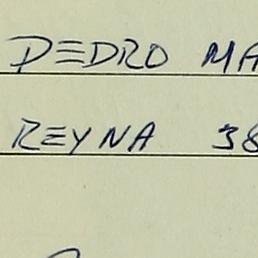 PEDRO MA
REYNA 38